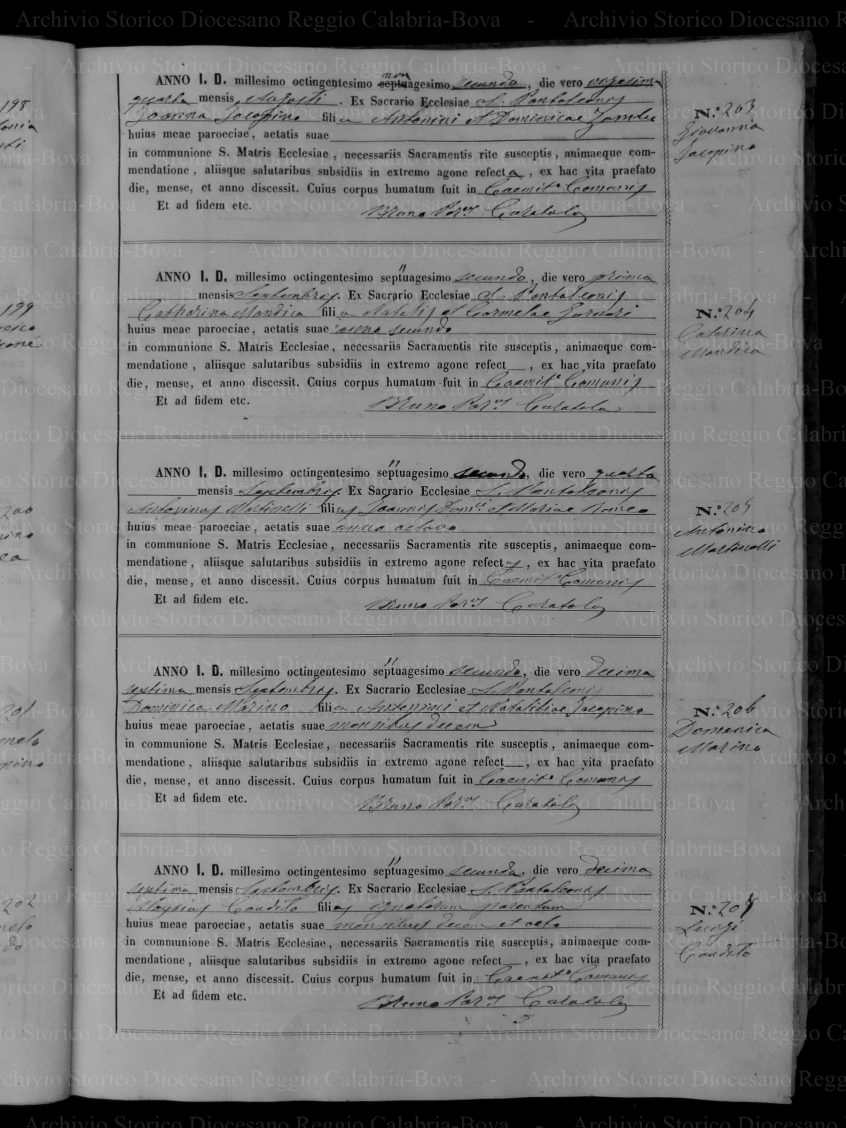 Archivio Storico Diocesano Reggio Calabria-Bova - Archivio Storico Diocesano Reggio
ANNO I. D. millesimo octingentesimo septuagesimo non secundo, die vero vigesima
quarta mensis Augusti. Ex Sacrario Ecclesiae S. Pantaleonis
Joanna Jacopino filia Antonini et Dominicae
huius meae paroeciae, aetatis suae
in communione S. Matris Ecclesiae, necessariis Sacramentis rite susceptis, animaeque com-
mendatione, aliisque salutaribus subsidiis in extremo agone refecta, ex hac vita praefato
die, mense, et anno discessit. Cuius corpus humatum fuit in Caemit.o Comunis
Et ad fidem etc.
Bruno Par.us
N.º 203
Giovannia
Jacopino
ANNO I. D. millesimo octingentesimo septuagesimo secundo, die vero prima
mensis Septembris. Ex Sacrario Ecclesiae S. Pantaleonis
Catharina Mandica filia Natalis et Carmelae
huius meae paroeciae, aetatis suae anno secundo
in communione S. Matris Ecclesiae, necessariis Sacramentis rite susceptis, animaeque com-
mendatione, aliisque salutaribus subsidiis in extremo agone refect , ex hac vita praefato
die, mense, et anno discessit. Cuius corpus humatum fuit in Caemit.o Comunis
Et ad fidem etc.
Bruno Par.us
N.º 204
Catarina
Mandica
ANNO I. D. millesimo octingentesimo septuagesimo secundo, die vero quarta
mensis Septembris. Ex Sacrario Ecclesiae S. Pantaleonis
Antoninus Martinelli filius Joannis Dom.ci et Mariae Romeo
huius meae paroeciae, aetatis suae anno octavo
in communione S. Matris Ecclesiae, necessariis Sacramentis rite susceptis, animaeque com-
mendatione, aliisque salutaribus subsidiis in extremo agone refectus, ex hac vita praefato
die, mense, et anno discessit. Cuius corpus humatum fuit in Caemit.o Comunis
Et ad fidem etc.
Bruno Par.us
N.º 205
Antonino
Martinelli
ANNO I. D. millesimo octingentesimo septuagesimo secundo, die vero decima
septima mensis Septembris. Ex Sacrario Ecclesiae S. Pantaleonis
Dominica Marino filia Antonini et Natalitiae Jacopino
huius meae paroeciae, aetatis suae mensibus decem
in communione S. Matris Ecclesiae, necessariis Sacramentis rite susceptis, animaeque com-
mendatione, aliisque salutaribus subsidiis in extremo agone refect , ex hac vita praefato
die, mense, et anno discessit. Cuius corpus humatum fuit in Caemit.o Comunis
Et ad fidem etc.
Bruno Par.us
N.º 206
Domenica
Marino
ANNO I. D. millesimo octingentesimo septuagesimo secundo, die vero decima
septima mensis Septembris. Ex Sacrario Ecclesiae S. Pantaleonis
Aloysius Condito filius ignotorum parentum
huius meae paroeciae, aetatis suae mensibus decem et octo
in communione S. Matris Ecclesiae, necessariis Sacramentis rite susceptis, animaeque com-
mendatione, aliisque salutaribus subsidiis in extremo agone refect , ex hac vita praefato
die, mense, et anno discessit. Cuius corpus humatum fuit in Caemit.o Comunis
Et ad fidem etc.
Bruno Par.us
N.º 207
Luigi
Condito
198
199
200
201
202